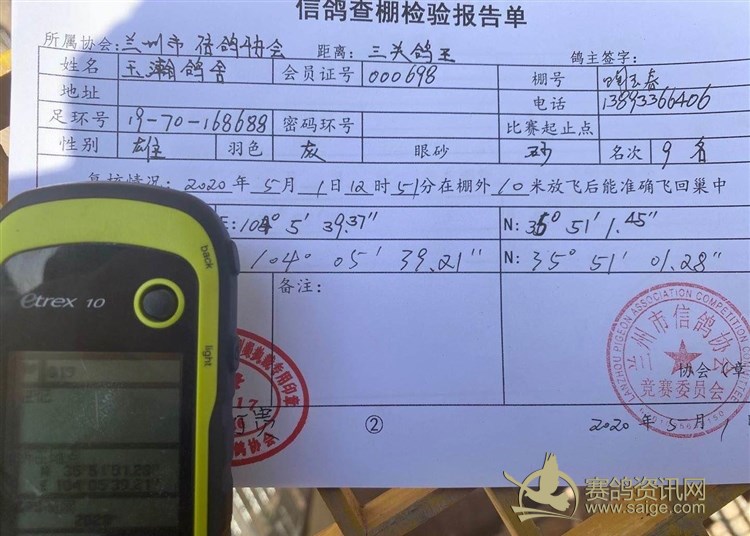 信鸽查棚检验报告单
所属协会: 兰州市信鸽协会 距离: 三关鸽王 鸽主签字:
姓名 玉瀚鸽舍 会员证号 000698 棚号
地址 电话 13893366406
足环号 19-70-168688 密码环号 比赛起止点
性别 雄 羽色 灰 眼砂 砂 名次 9名
复核情况: 2020年5月1日12时51分在棚外10米放飞后能准确飞回巢中
E: 104° 5′ 39.37″ N: 35° 51′ 1.45″
104° 05′ 39.21″ N: 35° 51′ 01.28″
备注:
back
etrex 10
light
LANZHOU PIGEON ASSOCIATION COMPETITION
兰州市信鸽协会
竞赛委员会
协会(章
专用印章
②
2020年5月1
赛鸽资讯网
www.saige.com